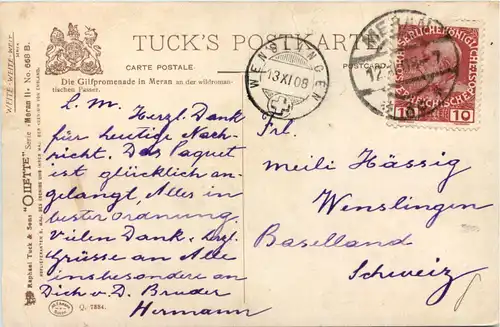 TUCK'S POSTKARTE
CARTE POSTALE
POSTCARD
Die Gilfpromenade in Meran an der wildroman-
tischen Passer.
WENSLINGEN
13 XI 08
MERAN
10 10
L. M. Herzl. Dank
für heutige Nach-
richt. Das Paquet
ist glücklich an-
gelangt, Alles in
bester Ordnung.
Vielen Dank & herzl.
Grüsse an Alle
insbesondere an
Dich v. D. Bruder
Hermann
Frl.
Meili Hässig
Wenslingen
Baselland
Schweiz
WEITE-WEITE-WELT
Raphael Tuck & Sons' "OILETTE" Serie „Meran II“ No. 668 B.
Q. 7884.